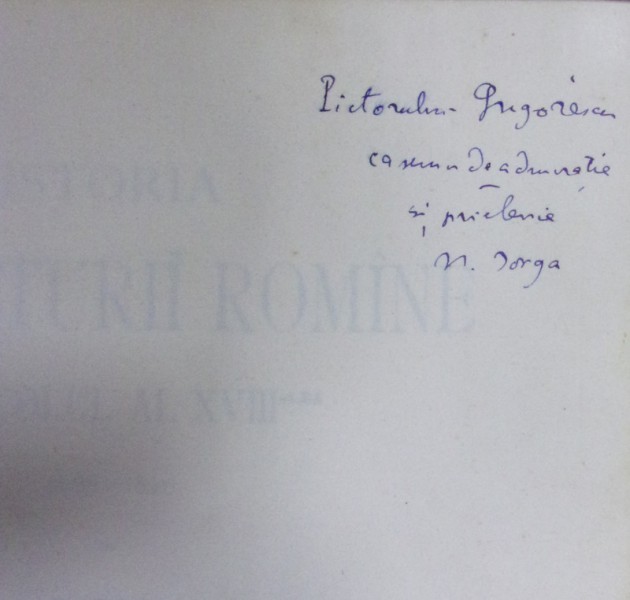 Pictorului Grigorescu
ca semn de admirație
și prietenie
N. Iorga
ISTORIA
TURIĬ ROMÎNE
AL XVIII